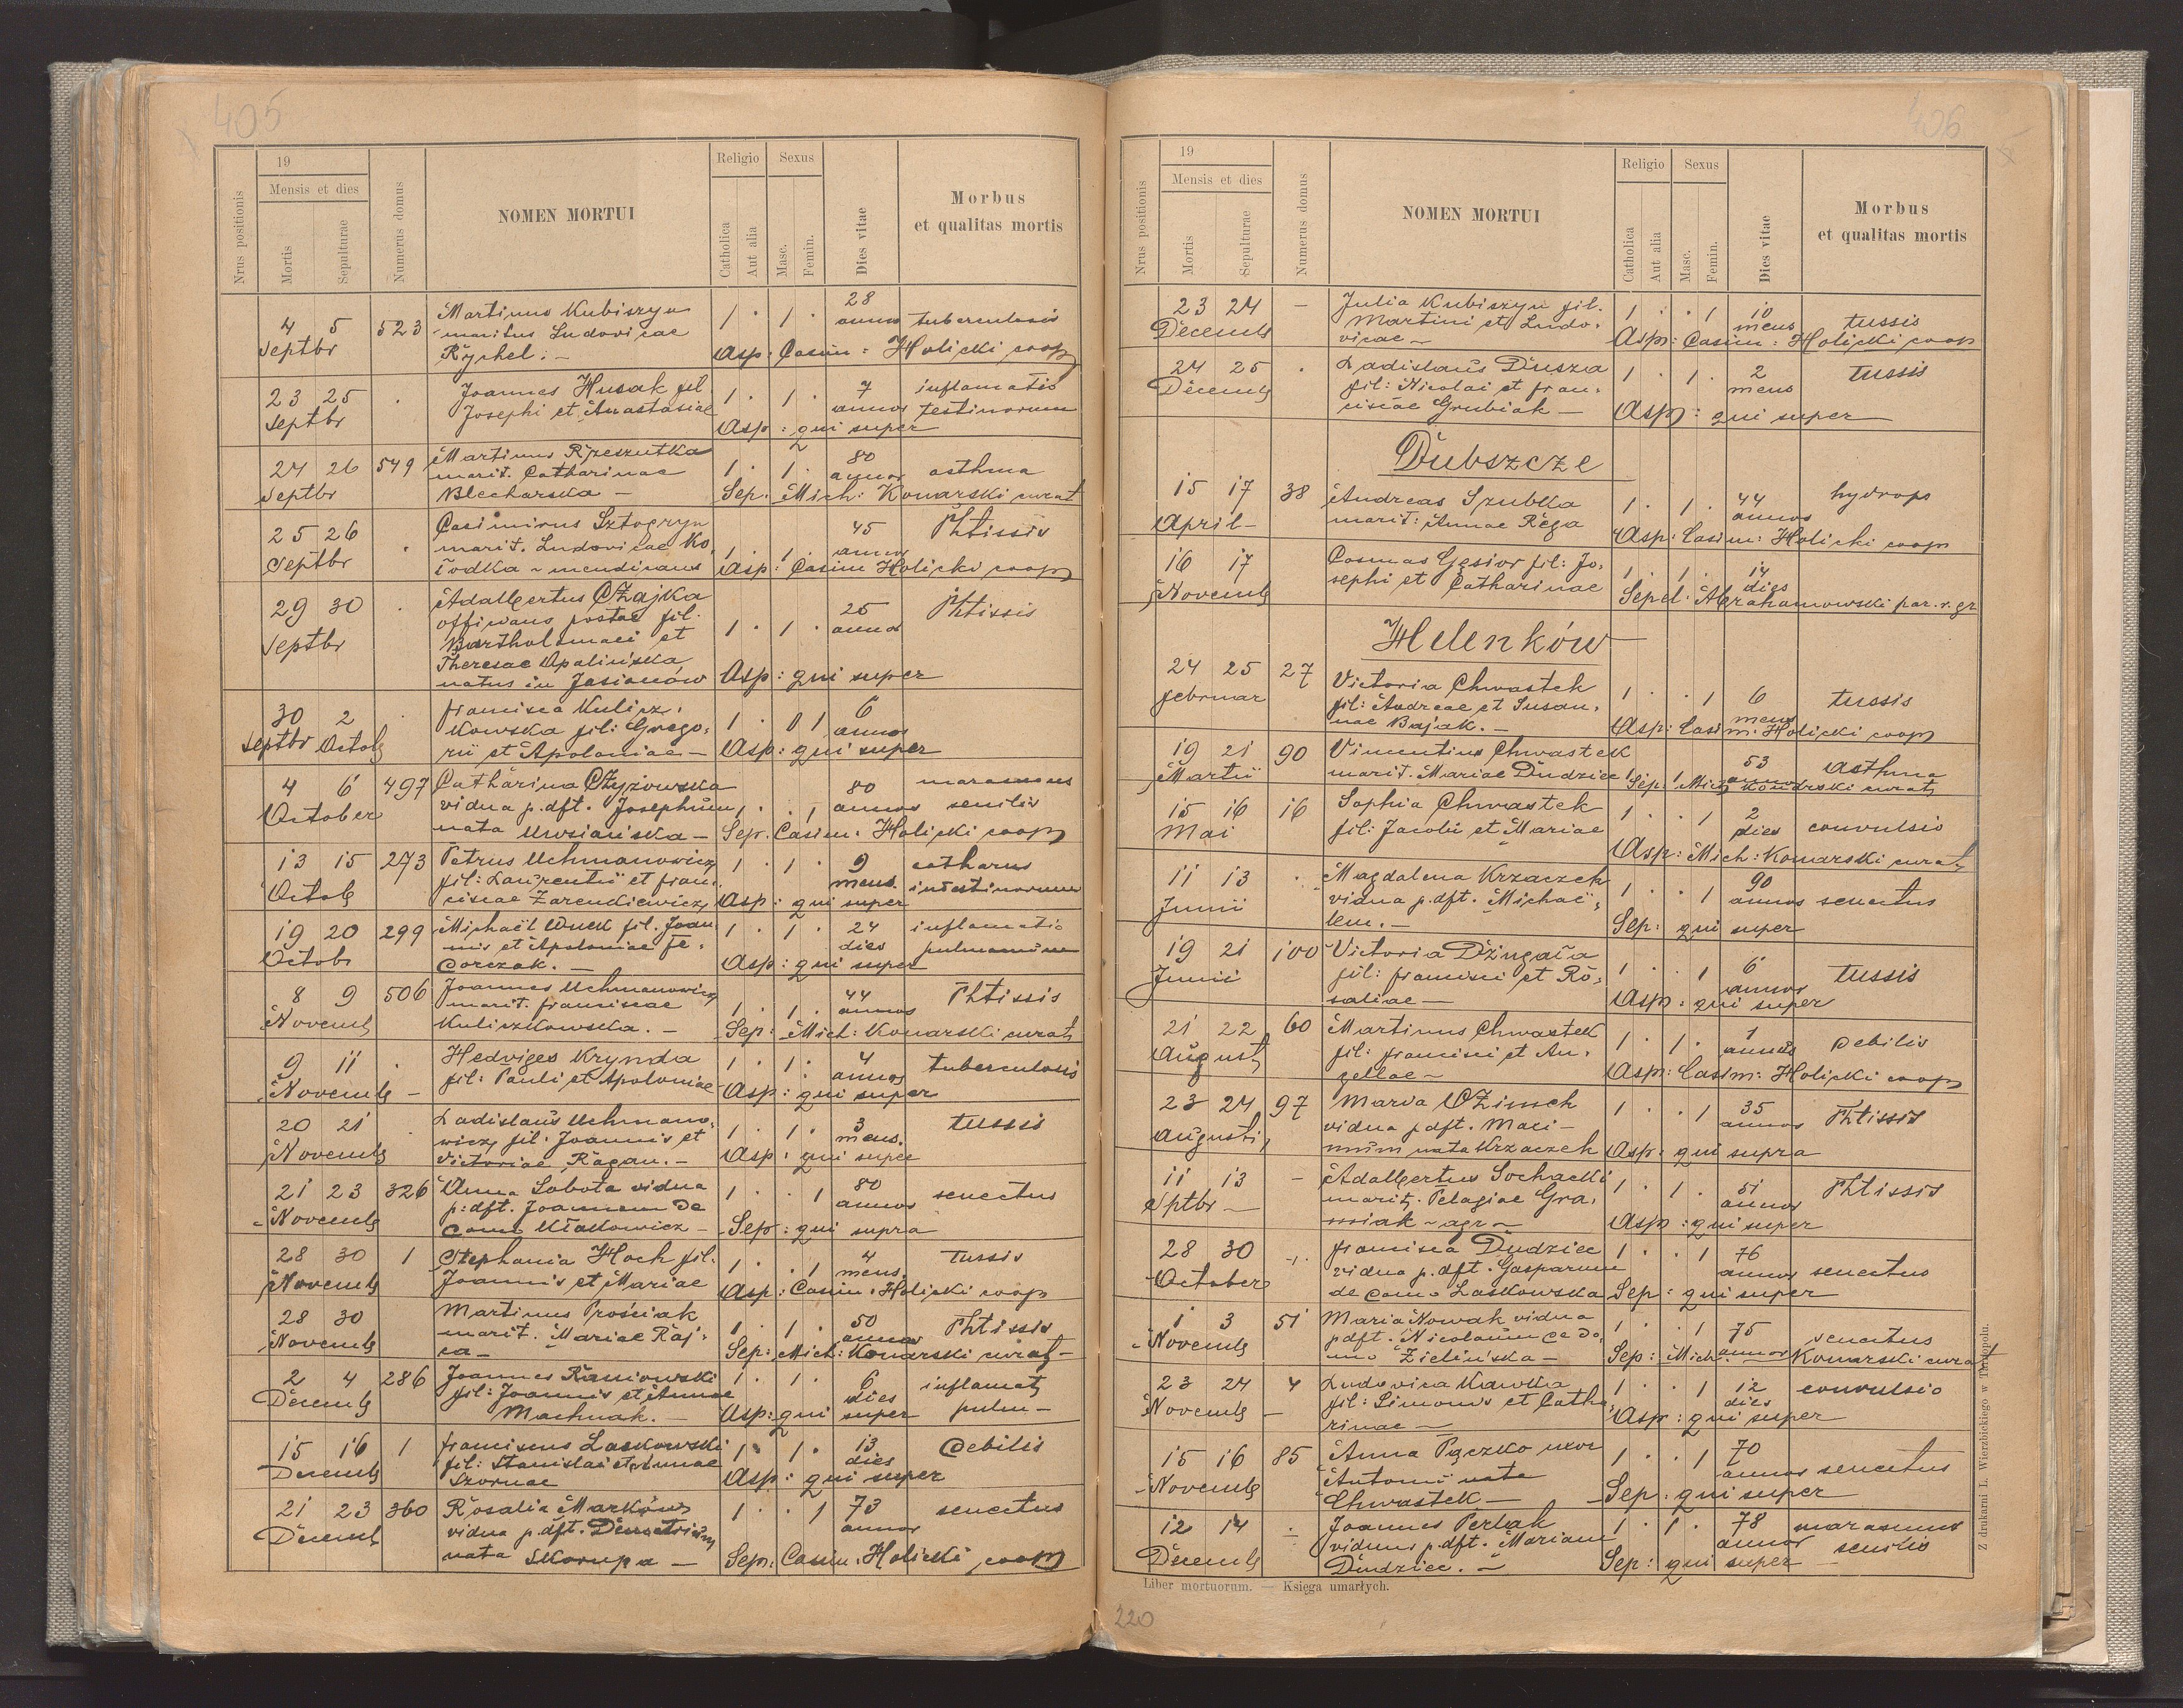 405
19
Mensis et dies
Nrus positionis
Mortis
Sepulturae
Numerus domus
NOMEN MORTUI
Religio
Catholica
Aut alia
Sexus
Masc.
Femin.
Dies vitae
Morbus
et qualitas mortis
4 5 523 Martinus Kubiszyn 1 · 1 · 28
Septbr maritus Ludovicae annos tuberculosis
Rychel. – Asp: Casim: Holicki coop
23 25 · Joannes Husak fil. 1 · 1 · 7 inflamatio
Septbr Josephi et Anastasiae annos testinorum
Asp: qui super
24 26 549 Martinus Rzeszutka 1 · 1 · 80
Septbr marit. Catharinae annos asthma
Blecharska – Sep. Mich: Konarski curat
25 26 · Casimirus Sztogryn 45 Phtissis
Septbr marit. Ludovicae Ko, 1 · 1 · annos
łodka ~ mendicans Asp: Casim Holicki coop
29 30 · Adalbertus Czajka 25 Phtissis
Septbr offi postae fil. 1 · 1 · annos
Bartholomaei et
Theresae Opalińska,
natus in Jasionów Asp: qui super
30 2 · francisca Kulicz, 6
Septbr Octob kowska fil: Grego, 1 · 1 annos
rii et Apoloniae – Asp: qui super
4 6 497 Catharina Czyżowska 80 marasmus
October vidua p. dft. Josephum 1 · · 1 annos senilis
nata – Sep. Casim. Holicki coop
13 15 273 Petrus Uchmanowicz 1 · 1 · 9 catharus
Octob fil: Laurentii et fran, mens. intestinorum
ciscae Zarenkiewicz Asp: qui super
19 20 299 Michaël Wnek fil. Joan 1 · 1 · 24 inflamatio
Octob nis et Apoloniae Fe, dies pulmonum
dorczak. – Asp: qui super
8 9 506 Joannes Uchmanowicz 44 Phtissis
Novemb marit. franciscae 1 · 1 · annos
Kuliczkowska. – Sep: Mich: Konarski curat
9 11 · Hedviges Krynda 1 · 1 · 4 tuberculosis
Novemb – fil: Pauli et Apoloniae annos
Asp: qui super
20 21 · Ladislaus Uchmano, 3 tussis
Novemb wicz fil. Joannis et 1 · 1 · mens.
Victoriae Ragan. – Asp: qui super
21 23 326 Anna Sobota vidua 80
Novemb p: dft. Joannem de 1 · · 1 annos senectus
domo – Sep: qui supra
28 30 1 Stephania Hoch fil. 4 tussis
Novemb Joannis et Mariae 1 · · 1 mens.
Asp: Casim. Holicki coop
28 30 Martinus Prościak 50 Phtissis
Novemb marit. Mariae Raj, 1 · 1 · annos
ca – Sep: Mich: Konarski curat –
2 4 286 Joannes Rassowski 1 · 1 · 6 inflamat
Decemb fil: Joannis et Annae dies pulm –
Machnak. – Asp: qui super
15 16 1 franciscus Laskowski 1 · 1 · 13 debilis
Decemb fil: Stanislai et Annae dies
Szornae Asp: qui super
21 23 360 Rosalia Marków 1 · · 1 73 senectus
Decemb vidua p. dft. Demetrium annos
nata Skorupa – Sep: Casim: Holicki coop
406
19
Mensis et dies
Nrus positionis
Mortis
Sepulturae
Numerus domus
NOMEN MORTUI
Religio
Catholica
Aut alia
Sexus
Masc.
Femin.
Dies vitae
Morbus
et qualitas mortis
23 24 – Julia Kubiszyn fil. 1 · · 1 10
Decemb Martini et Ludo, mens tussis
vicae – Asp: Casim: Holicki coop
24 25 · Ladislaus Dusza 1 · 1 · 2 tussis
Decemb fil: Nicolai et fran, mens
ciscae Grubiak – Asp: qui super
Dubszcze
15 17 38 Andreas Szubka 1 · 1 · 44 hydrops
April – marit: Annae Rega annos
Asp: Casim: Holicki coop
16 17 Cosmas Gęsior fil: Jo, 1 · 1 · 14
Novemb sephi et Catharinae dies
Sepel: Abrahamowski par. r. gr
Helenków
24 25 27 Victoria Chwastek 1 · · 1 6 tussis
februar fil: Andreae et Susan, mens
nae Bajak. – Asp: Casim: Holicki coop
19 21 90 Vincentius Chwastek 53 Asthma
Martii marit. Mariae Dudziec 1 · 1 · annos
Sep. Mich Konarski curat
15 16 16 Sophia Chwastek 1 · · 1 2
Mai fil: Jacobi et Mariae dies convulsio
Asp: Mich: Konarski curat
11 13 · Magdalena Krzaczek 1 · · 1 90
Junii vidua p. dft. Michaë, annos senectus
lem. – Sep: qui super
19 21 100 Victoria Dżugała 1 · · 1 6 tussis
Junii fil: francisci et Ro, annos
saliae – Asp: qui super
21 22 60 Martinus Chwastek 1 · 1 · 1 debilis
August fil: francisci et An, annus
gellae ~ Asp: Casim: Holicki coop
23 24 97 Maria Ozimek 1 · · 1 35 Phtissis
Augusti vidua p dft. Maci – annos
nata Krzaczek Asp: qui supra
11 13 – Adalbertus Sochacki 1 · 1 · 51 Phtissis
Sptbr – marit. Pelagiae Gra, annos
ssiak ~ agr ~ Asp: qui super
28 30 francisca Dudziec 1 · · 1 76
October vidua p. dft. Gasparum annos senectus
de domo Laskowska Sep: qui super
1 3 51 Maria Nowak vidua 1 · · 1 75
Novemb p dft. Nicolaum de do, annos senectus
mo Zielińska – Sep: Mich. Konarski curat
23 24 4 Ludovica Kawka 1 · · 1 12 convulsio
Novemb – fil: Simonis et Catha, dies
rinae – Asp: qui super
15 16 85 Anna Pączko uxor 1 · · 1 70
Novemb Antonii nata annos senectus
Chwastek – Sep: qui super
12 14 Joannes Perlak 1 · 1 · 78 marasmus
Decemb viduus p. dft. Mariam annos senilis
Dudziec. – Sep: qui super
Liber mortuorum. — Księga umarłych.
Z drukarni L. Wierzbickiego w Tarnopolu.
220